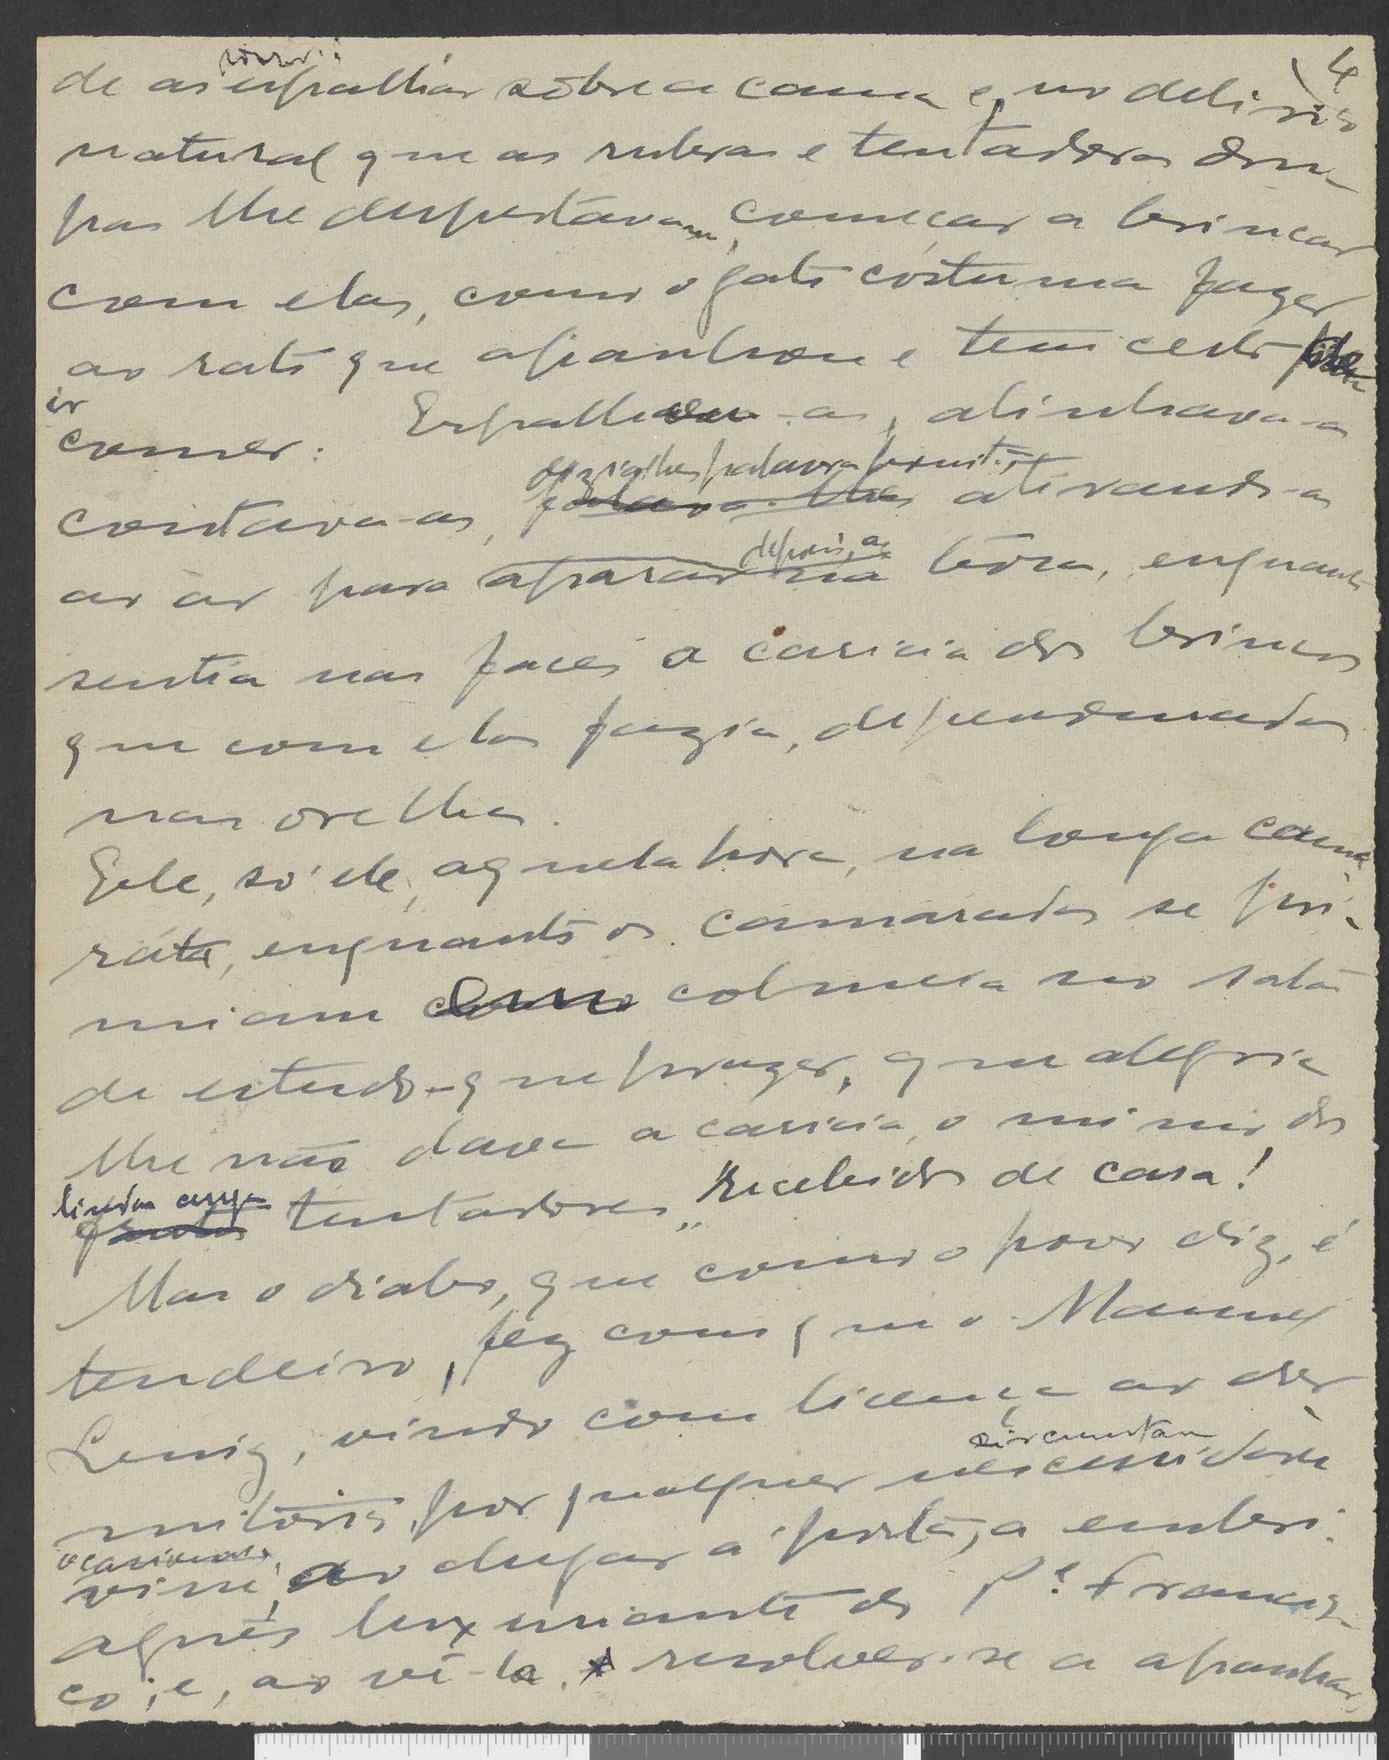 4
de as espalhar sôbre a cama e, no delirio
natural que as rubras e tentadoras drupas
pas lhe despertavam, começar a brincar
com elas, como o gato costuma fazer
ao rato que apanhou e tem certo para
ir
comer: Espalhou-as, alinhava-as
dizia-lhes palavra
contava-as, falava-lhes atirando-as
depois, a
ao ar para aparar na bôca, enquanto
sentia nas faces a caricia dos brincos
que com elas fazia, dependurados
nas orelhas.
Ele, só ele, aquela hora, na longa cama
rata, enquanto os camaradas se pre
miam como colmeia no salão
de estudo - que prazer, que alegria
lhe não dava a caricia, o mimo dos
lindos
frutos tentadores, recebidos de casa!
Mas o diabo, que como o povo diz, é
tendeiro, fez com que o Manuel
Luniz, vindo com licença ao dor
circunstan
mitório, por qualquer necessidade
ocasional
viu, ao chegar á porta, a embri.
aguês luxuriante do P.e Francis
co; e, ao vê-la, resolver-se a apanhar